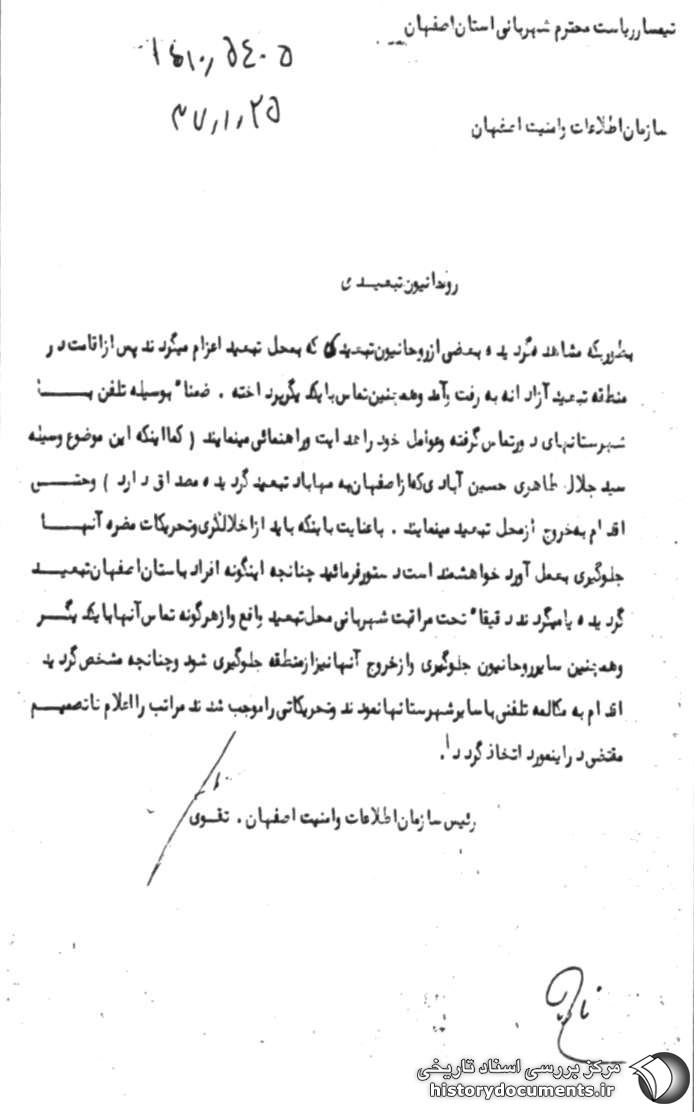 تیمسار ریاست محترم شهربانی استان اصفهان
۱۶۱۰٫۵۴۰۵
۳۷٫۱٫۲۵
سازمان اطلاعات و امنیت اصفهان
روحانیون تبعیدی
بطوریکه مشاهده گردیده بعضی از روحانیون تبعیدی که بمحل تبعید اعزام میگردند پس از اقامت در
منطقه تبعید آزادانه به رفت و آمد و همچنین تماس با یکدیگر پرداخته . ضمنا" بوسیله تلفن بـــا
شهرستانهای دور تماس گرفته و عوامل خود را هدایت و راهنمائی مینمایند ( کما اینکه این موضوع وسیله
سید جلال طاهری حسین آبادی که از اصفهان به مهاباد تبعید گردیده مصداق دارد ) و حتـــی
اقدام به خروج از محل تبعید مینمایند . با عنایت باینکه باید از اخلالگری و تحریکات مضره آنهـــا
جلوگیری بعمل آورد خواهشمند است دستور فرمائید چنانچه اینگونه افراد باستان اصفهان تبعیـــد
گردیده یا میگردند دقیقا" تحت مراقبت شهربانی محل تبعید واقع و از هرگونه تماس آنها با یکدیگـــر
و همچنین سایر روحانیون جلوگیری و از خروج آنها نیز از منطقه جلوگیری شود و چنانچه مشخص گردید
اقدام به مکالمه تلفنی با سایر شهرستانها نمودند و تحریکاتی را موجب شدند مراتب را اعلام تا تصمیـم
مقتضی در اینمورد اتخاذ گردد .
رئیس سازمان اطلاعات و امنیت اصفهان . تقوی
مرکز بررسی اسناد تاریخی
historydocuments.ir